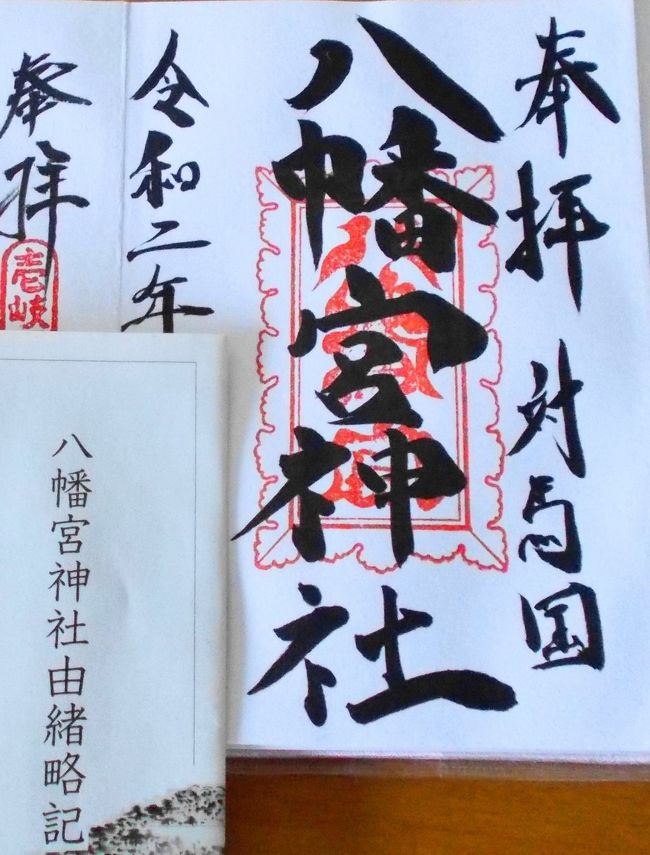 奉拝 対馬国
八幡宮神社
令和二年
奉拝
壱岐
八幡宮神社由緒略記